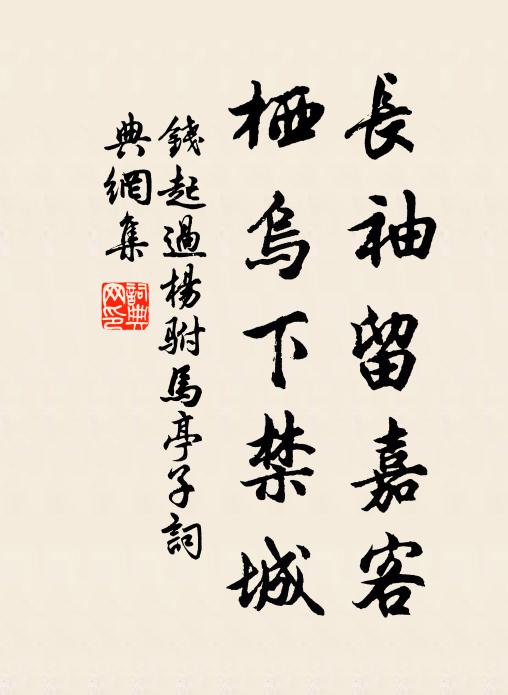 長袖留嘉客
栖烏下禁城
錢起過楊駙馬亭子詞
典網集
詞典网印